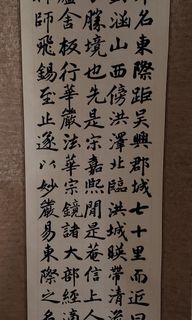 名東際距吳興郡城七十里而近曰
對涵山西傍洪澤北臨洪城暎帶清流
勝境也先是宋嘉熙間是菴信上人
廬舍板行華嚴法華宗鏡諸大部經適
禪師飛錫至止遂以妙嚴易東際之名